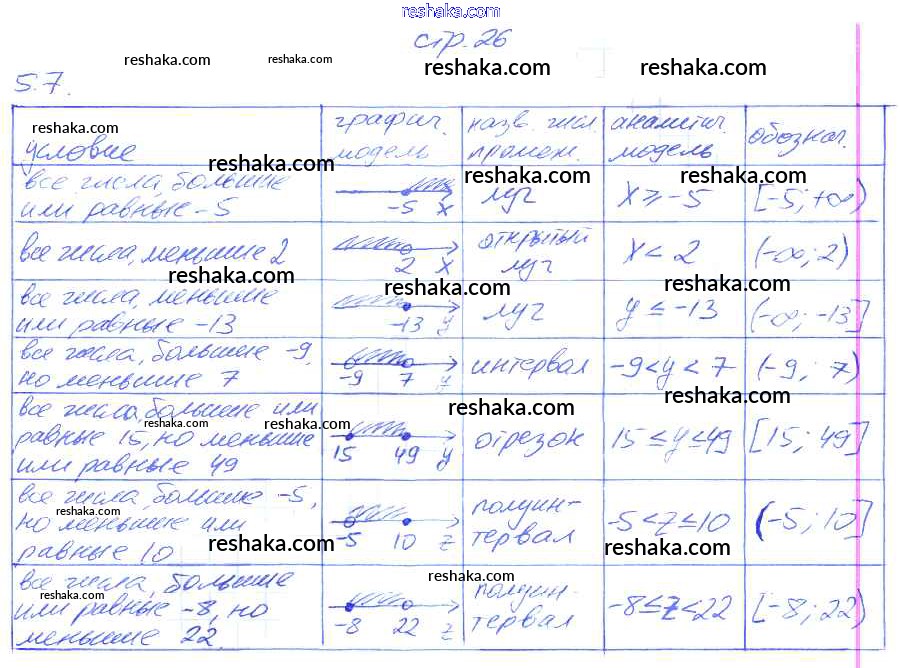 reshaka.com
стр. 26
reshaka.com reshaka.com reshaka.com reshaka.com
5.7.
reshaka.com
условие
графич. модель
назв. числ. промеж.
аналитич. модель
обознач.
reshaka.com reshaka.com reshaka.com
все числа, большие
или равные -5
-5 x
луч
x ≥ -5
[-5; +∞)
все числа, меньшие 2
2 x
открытый
луч
x < 2
(-∞; 2)
reshaka.com reshaka.com reshaka.com
все числа, меньшие
или равные -13
-13 y
луч
y ≤ -13
(-∞; -13]
все числа, большие -9,
но меньшие 7
-9 7 y
интервал
-9 < y < 7
(-9; 7)
reshaka.com reshaka.com
все числа, большие или
равные 15, но меньшие
или равные 49
reshaka.com reshaka.com
15 49 y
отрезок
15 ≤ y ≤ 49
[15; 49]
все числа, большие -5,
но меньшие или
равные 10
reshaka.com
-5 10 z
полуин-
тервал
-5 < z ≤ 10
(-5; 10]
reshaka.com reshaka.com
все числа, большие
или равные -8, но
меньшие 22.
reshaka.com reshaka.com
-8 22 z
полуин-
тервал
-8 ≤ z < 22
[-8; 22)